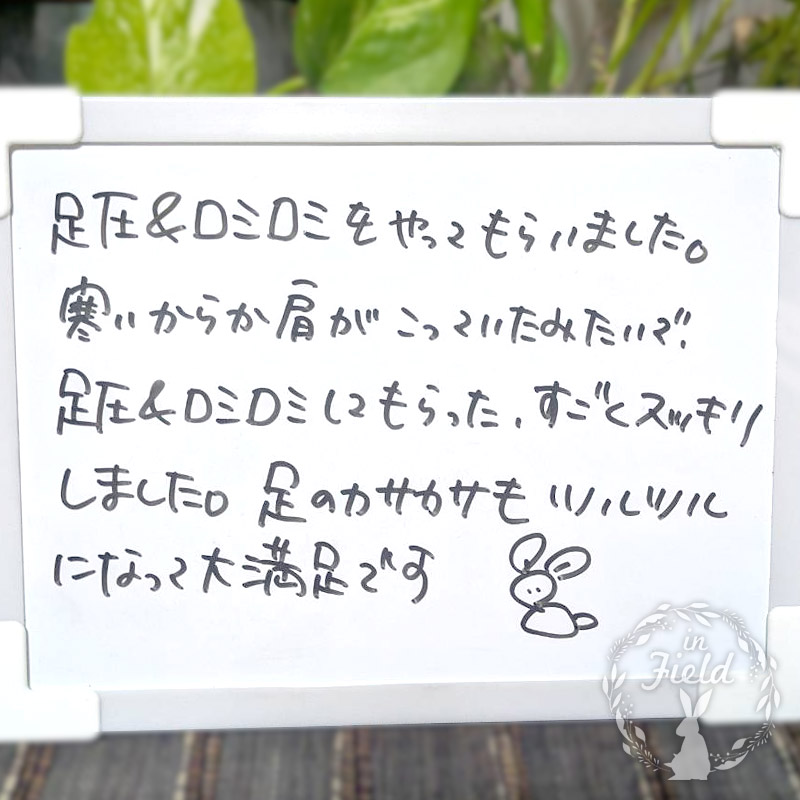 足圧&ロミロミをやってもらいました。
寒いからか肩がこっていたみたいで、
足圧&ロミロミしてもらった、すごくスッキリ
しました。足のカサカサもツルツル
になって大満足です
in
Field